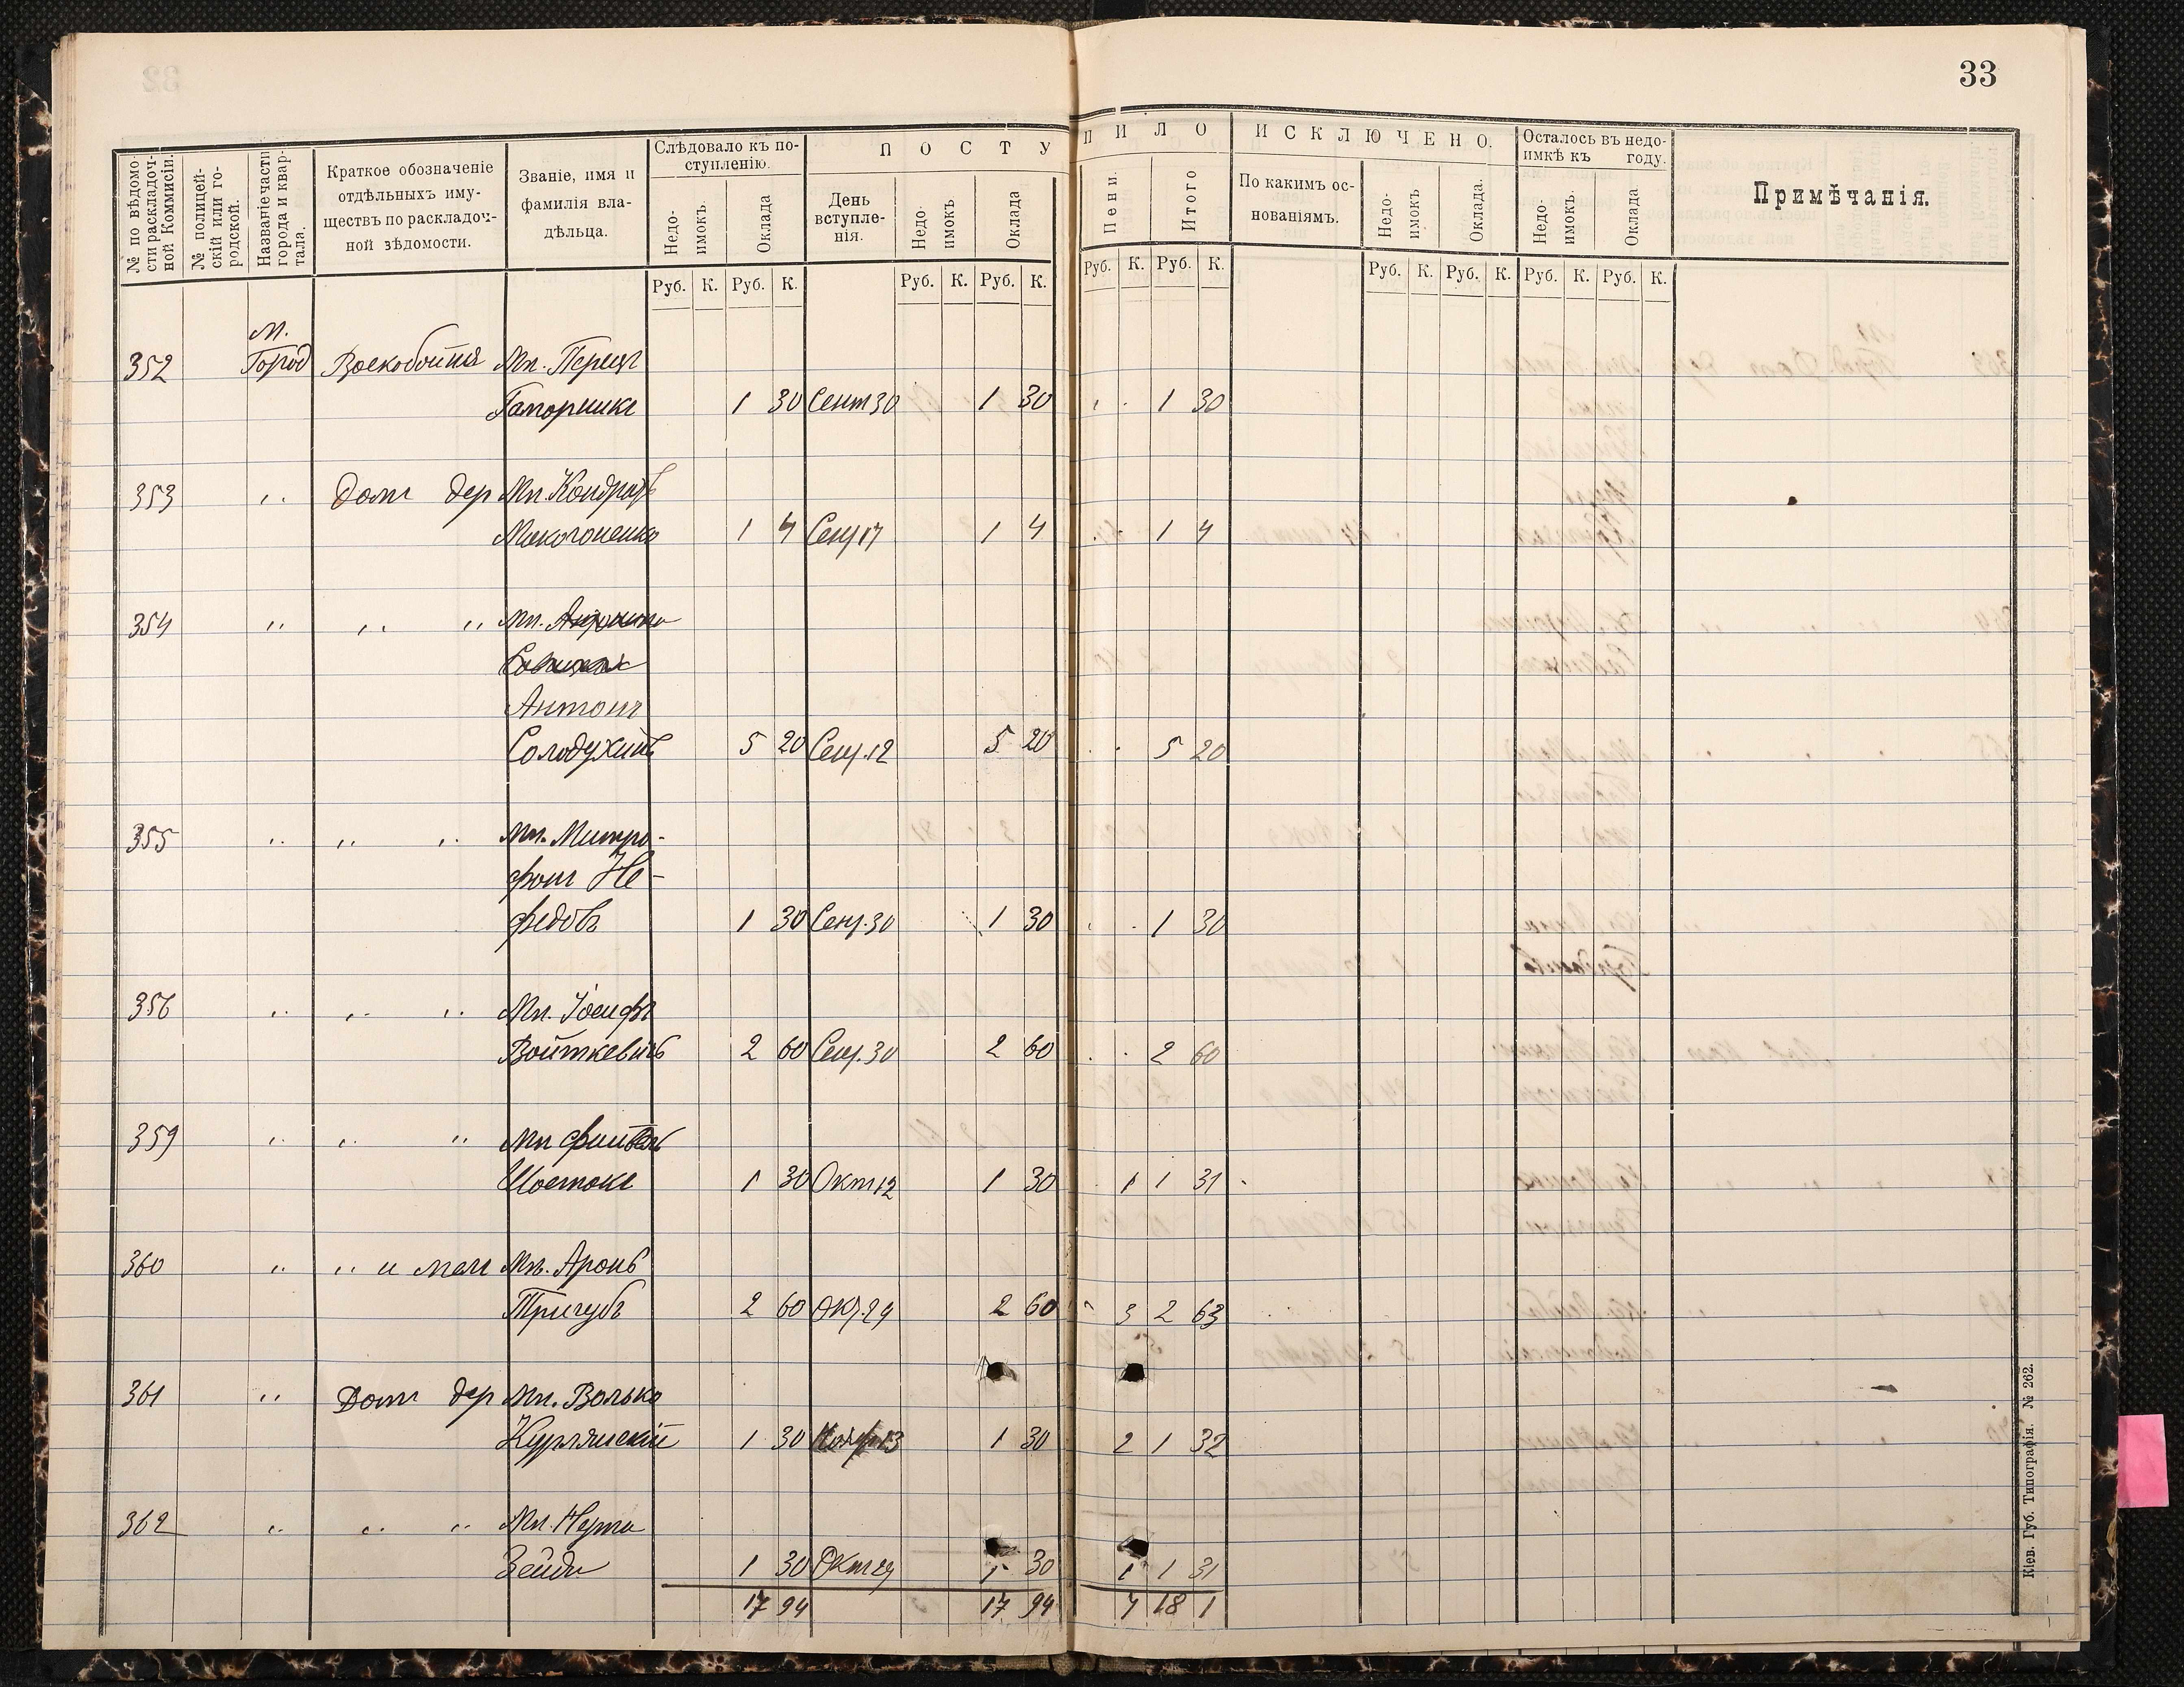 33
№ по вѣдомости раскладочной Коммисіи.
№ полицейскій или городской.
Названіе части города и квартала.
Краткое обозначеніе отдѣльныхъ имуществъ по раскладочной вѣдомости.
Званіе, имя и фамилія владѣльца.
Слѣдовало къ поступленію.
Недоимокъ.
Оклада
ПОСТУПИЛО
День вступленія.
Недоимокъ
Оклада
Пени.
Итого
ИСКЛЮЧЕНО.
По какимъ основаніямъ.
Недоимокъ
Оклада.
Осталось въ недоимкѣ къ году.
Недоимокъ.
Оклада
Примѣчанія.
Руб. К. Руб. К. Руб. К. Руб. К. Руб. К. Руб. К. Руб. К. Руб. К. Руб. К. Руб. К.
м.
352 Город Воскобойня Мщ. Перецъ
1 30 Сент 30 1 30 1 30
353 „ Домъ дер Мщ. Кондратъ
Макогоненко 1 4 Сен 17 1 4 1 4
354 „ „ „ Мщ.
Антонъ
Солодухинъ 5 20 Сен. 12 5 20 5 20
355 „ „ „ Мщ. Митро-
фанъ Не-
федовъ 1 30 Сен. 30 1 30 1 30
356 „ „ „ Мщ. Іосифъ
Войткевичъ 2 60 Сен. 30 2 60 2 60
359 „ „ „ Мщ
Шостакъ 1 30 Окт 12 1 30 1 1 31
360 „ „ и мел Мщ. Аронъ
Тригубъ 2 60 Окт. 24 2 60 3 2 63
361 „ Домъ дер Мщ. Волько
Курлянскій 1 30 Нояб 13 1 30 2 1 32
362 „ „ „ Мщ.
Зейди 1 30 Окт 24 1 30 1 1 31
17 94 17 94 7 18 1
Кіев. Губ. Типографія. № 262.